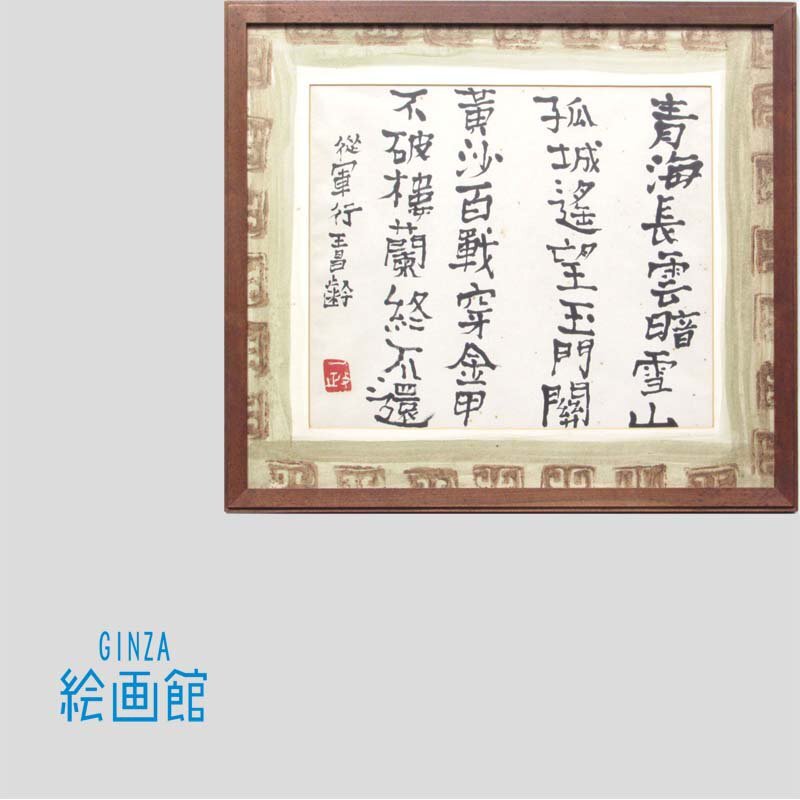 青海長雲暗雪山
孤城遙望玉門關
黃沙百戰穿金甲
不破樓蘭終不還
從軍行王昌齡
GINZA
絵画館